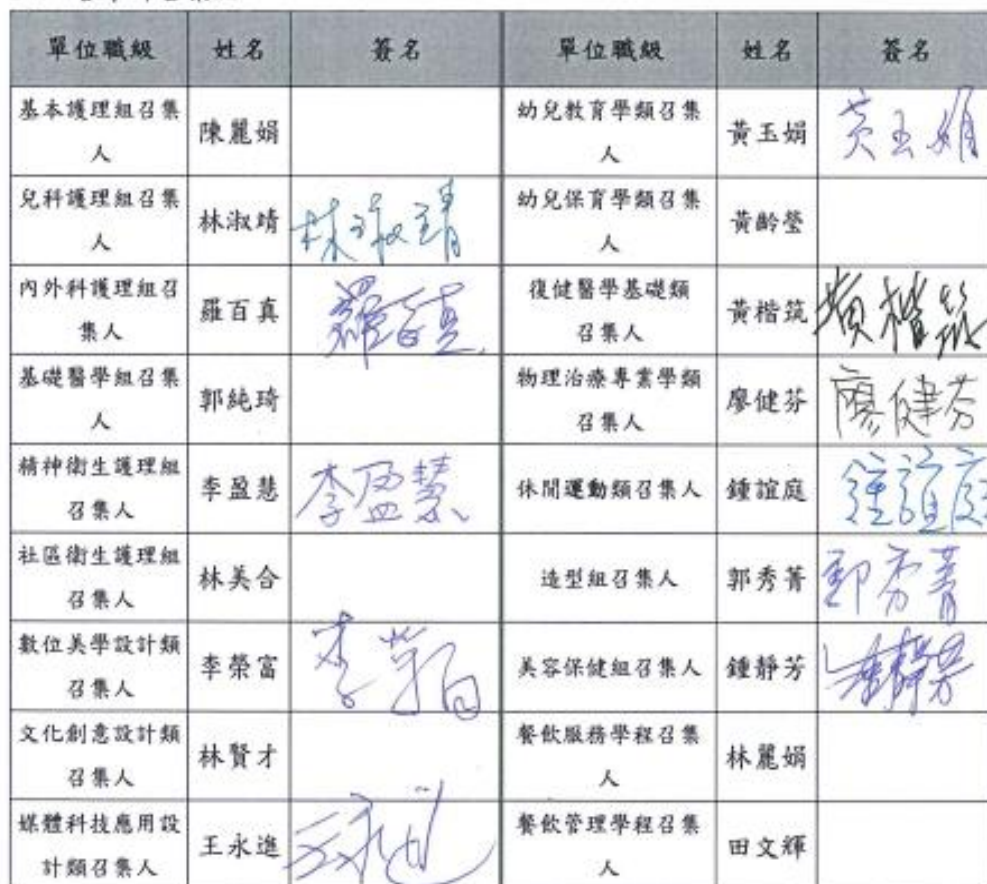 單位職級 姓名 簽名 單位職級 姓名 簽名
基本護理組召集人 陳麗娟 幼兒教育學類召集人 黃玉娟 黃玉娟
兒科護理組召集人 林淑靖 林淑靖 幼兒保育學類召集人 黃齡瑩
內外科護理組召集人 羅百真 羅百真 復健醫學基礎類召集人 黃楷筑 黃楷筑
基礎醫學組召集人 郭純琦 物理治療專業學類召集人 廖健芬 廖健芬
精神衛生護理組召集人 李盈慧 李盈慧 休閒運動類召集人 鍾誼庭 鍾誼庭
社區衛生護理組召集人 林美合 造型組召集人 郭秀菁 郭秀菁
數位美學設計類召集人 李榮富 李榮富 美容保健組召集人 鍾靜芳 鍾靜芳
文化創意設計類召集人 林賢才 餐飲服務學程召集人 林麗娟
媒體科技應用設計類召集人 王永進 王永進 餐飲管理學程召集人 田文輝